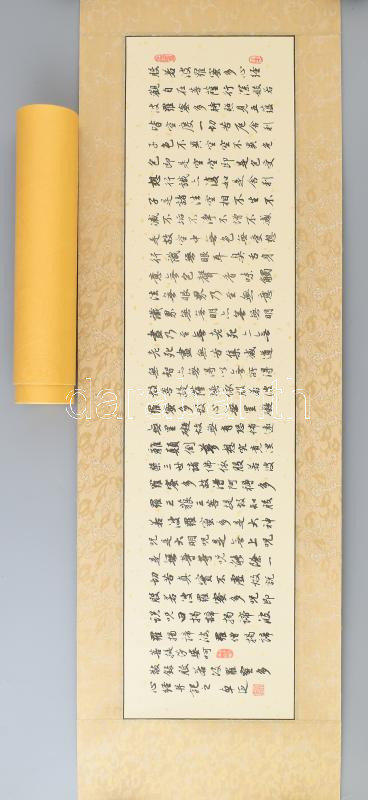 般若波羅蜜多心經
觀自在菩薩行深般若
波羅蜜多時照見五蘊
皆空度一切苦厄舍利
子色不異空空不異色
色即是空空即是色受
想行識亦復如是舍利
子是諸法空相不生不
滅不垢不淨不增不減
是故空中無色無受想
行識無眼耳鼻舌身
意無色聲香味觸
法無眼界乃至無意
識界無無明亦無無明
盡乃至無老死亦無
老死盡無苦集滅道
無智亦無得以無所得
故菩提薩埵依般若
波羅蜜多故心無罣礙
無罣礙故無有恐怖遠
離顛倒夢想究竟涅
槃三世諸佛依般若波
羅蜜多故得阿耨多
羅三藐三菩提故知般
若波羅蜜多是大神
咒是大明咒是無上咒
是無等等咒能除一
切苦真實不虛故說
般若波羅蜜多咒即
說咒曰揭諦揭諦波
羅揭諦波羅僧揭諦
菩提薩婆訶
敬錄般若波羅蜜多
心經并記之
darabanth